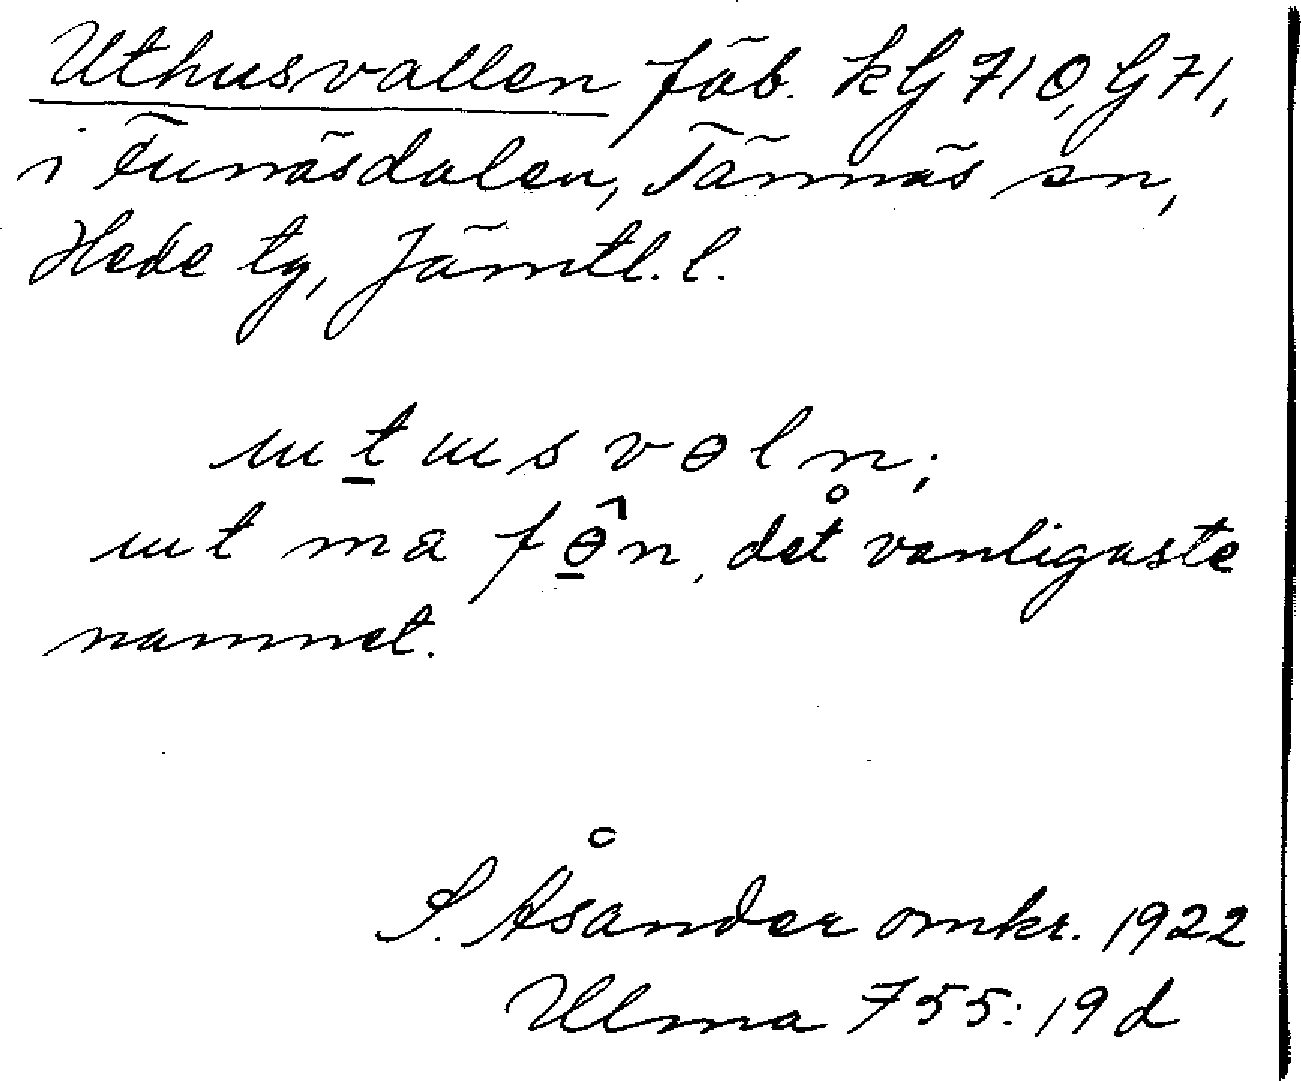 Uthusvallen fäb. kG 710, G 71,
i Funäsdalen, Tännäs sn,
Hede tg, Jämtl. l.
ɯt̲ɯsvɵln;
ɯt ma fɵ̲̂n, det vanligaste
namnet.
S. Åsander omkr. 1922
Ulma 755:19 d